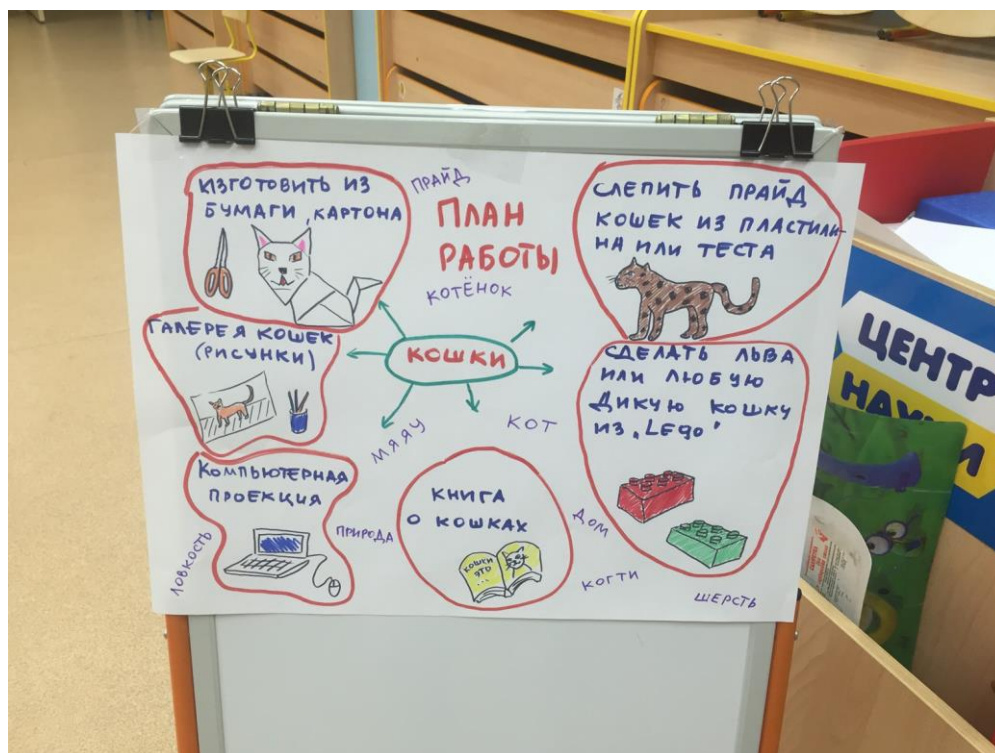 ИЗГОТОВИТЬ ИЗ
БУМАГИ, КАРТОНА
ПРАЙД
ПЛАН
РАБОТЫ
КОТЁНОК
СЛЕПИТЬ ПРАЙД
КОШЕК ИЗ ПЛАСТИЛИ-
НА ИЛИ ТЕСТА
ГАЛЕРЕЯ КОШЕК
(РИСУНКИ)
КОШКИ
СДЕЛАТЬ ЛЬВА
ИЛИ ЛЮБУЮ
ДИКУЮ КОШКУ
ИЗ „LEGO"
МЯЯУ
КОТ
КОМПЬЮТЕРНАЯ
ПРОЕКЦИЯ
КНИГА
О КОШКАХ
КОШКИ
ЭТО
...
ЛОВКОСТЬ
ПРИРОДА
ДОМ
КОГТИ
ШЕРСТЬ
ЦЕНТР
НАУКИ